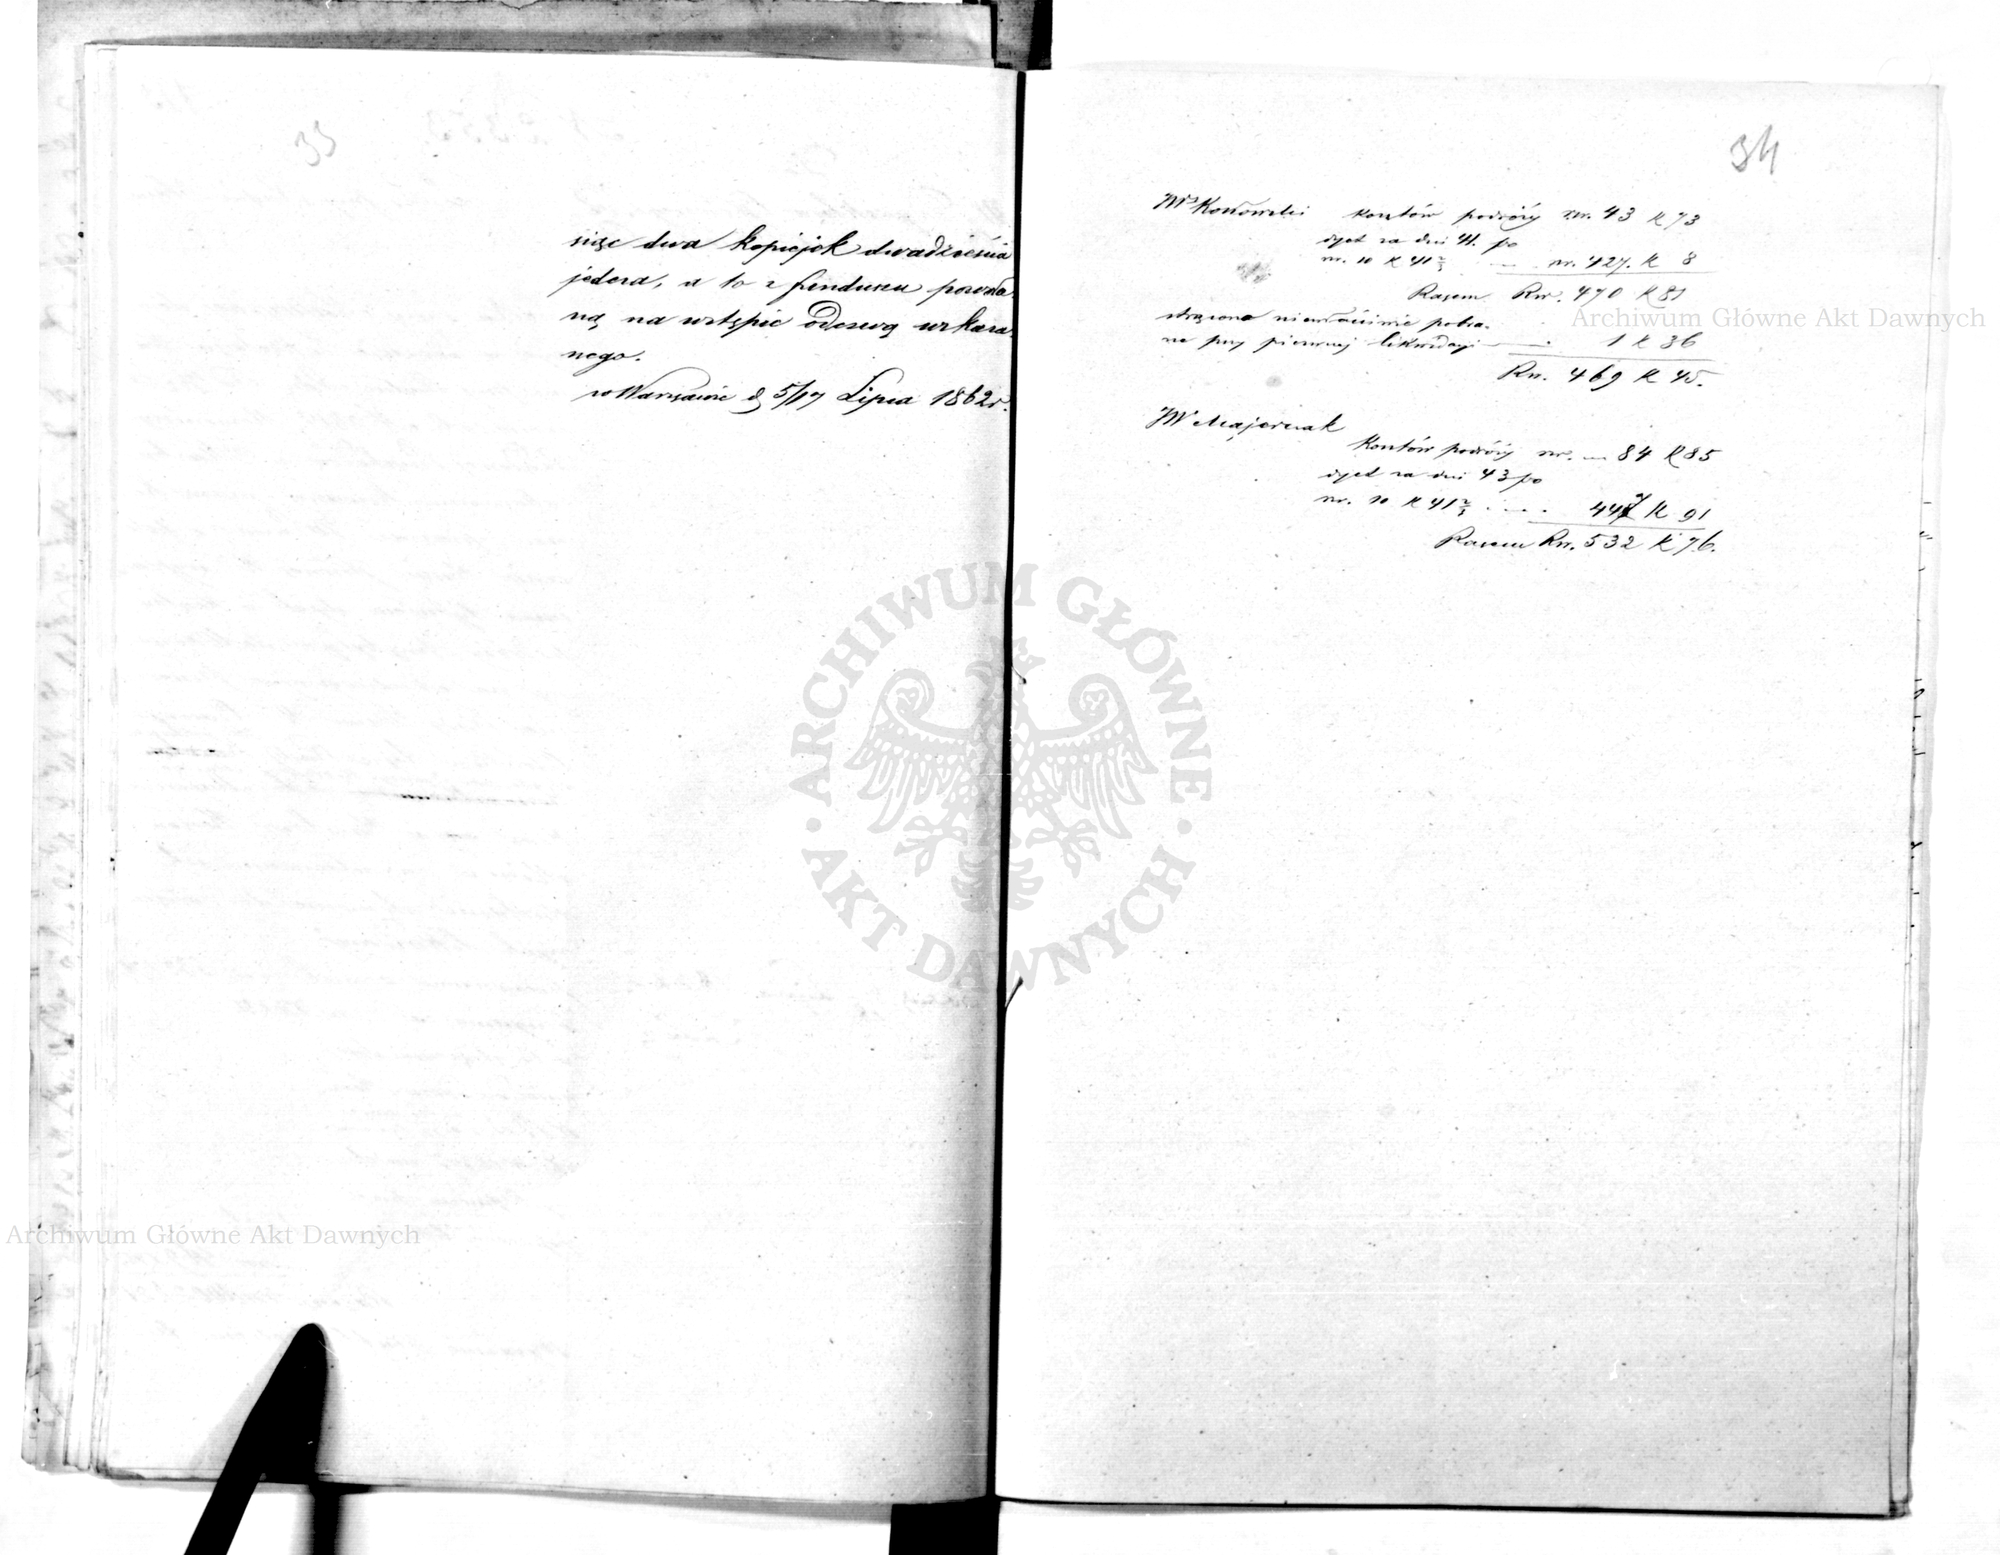 33
siąc dwa kopiejek dwadzieścia
jeden, a to z funduszu powoła-
ną na wstępie odezwą wskaza-
nego.
w Warszawie d 5/17 Lipca 1862 r.
34
kosztów podróży rsr. 43 k 73
dyet za dni 41. po
rsr. 10 k 41 2/3 rsr. 427. k 8
Razem Rsr. 470 k 81
strącono niewłaściwie pobra-
ne przy pierwszej likwidacyi 1 k 36
Rsr. 469 k 45.
JW Majerczak
Kosztów podróży rsr. 84 k 85
dyet za dni 43 po
rsr. 10 k 41 2/3 447 k 91
Razem Rsr. 532 k 76.
Archiwum Główne Akt Dawnych
ARCHIWUM GŁÓWNE AKT DAWNYCH
Archiwum Główne Akt Dawnych